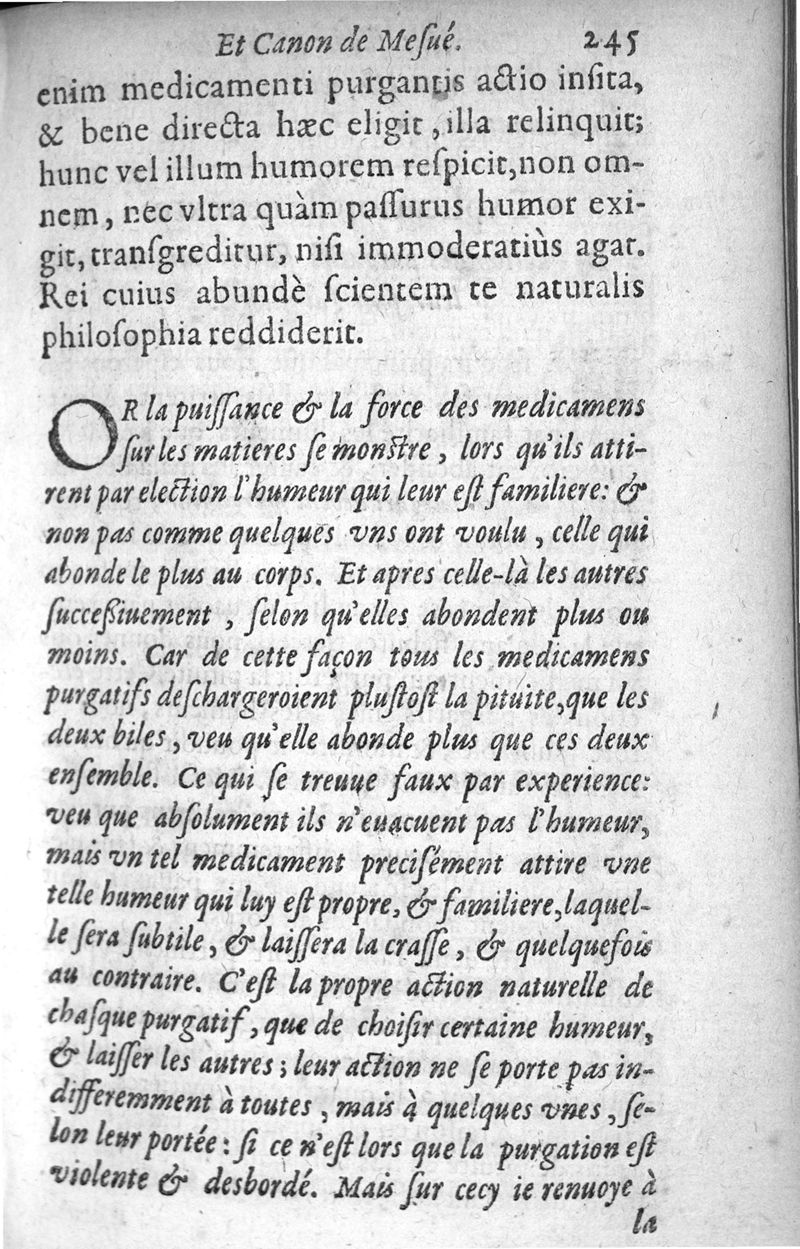 Et Canon de Meſué. 245
enim medicamenti purgantis actio inſita,
& bene directa hæc eligit, illa relinquit;
hunc vel illum humorem reſpicit, non om-
nem, nec vltra quàm paſſurus humor exi-
git, tranſgreditur, niſi immoderatiùs agat.
Rei cuius abundè ſcientem te naturalis
philoſophia reddiderit.
OR la puiſſance & la force des medicamens
ſur les matieres ſe monſtre, lors qu'ils atti-
rent par election l'humeur qui leur eſt familiere: &
non pas comme quelques vns ont voulu, celle qui
abonde le plus au corps. Et apres celle-là les autres
ſucceßiuement, ſelon qu'elles abondent plus ou
moins. Car de cette façon tous les medicamens
purgatifs deſchargeroient pluſtoſt la pituite, que les
deux biles, veu qu'elle abonde plus que ces deux
enſemble. Ce qui ſe treuue faux par experience:
veu que abſolument ils n'euacuent pas l'humeur,
mais vn tel medicament preciſément attire vne
telle humeur qui luy eſt propre, & familiere, laquel-
le ſera ſubtile, & laiſſera la craſſe, & quelquefois
au contraire. C'eſt la propre action naturelle de
chaſque purgatif, que de choiſir certaine humeur,
& laiſſer les autres; leur action ne ſe porte pas in-
differemment à toutes, mais à quelques vnes, ſe-
lon leur portée: ſi ce n'eſt lors que la purgation eſt
violente & desbordé. Mais ſur cecy ie renuoye à
la